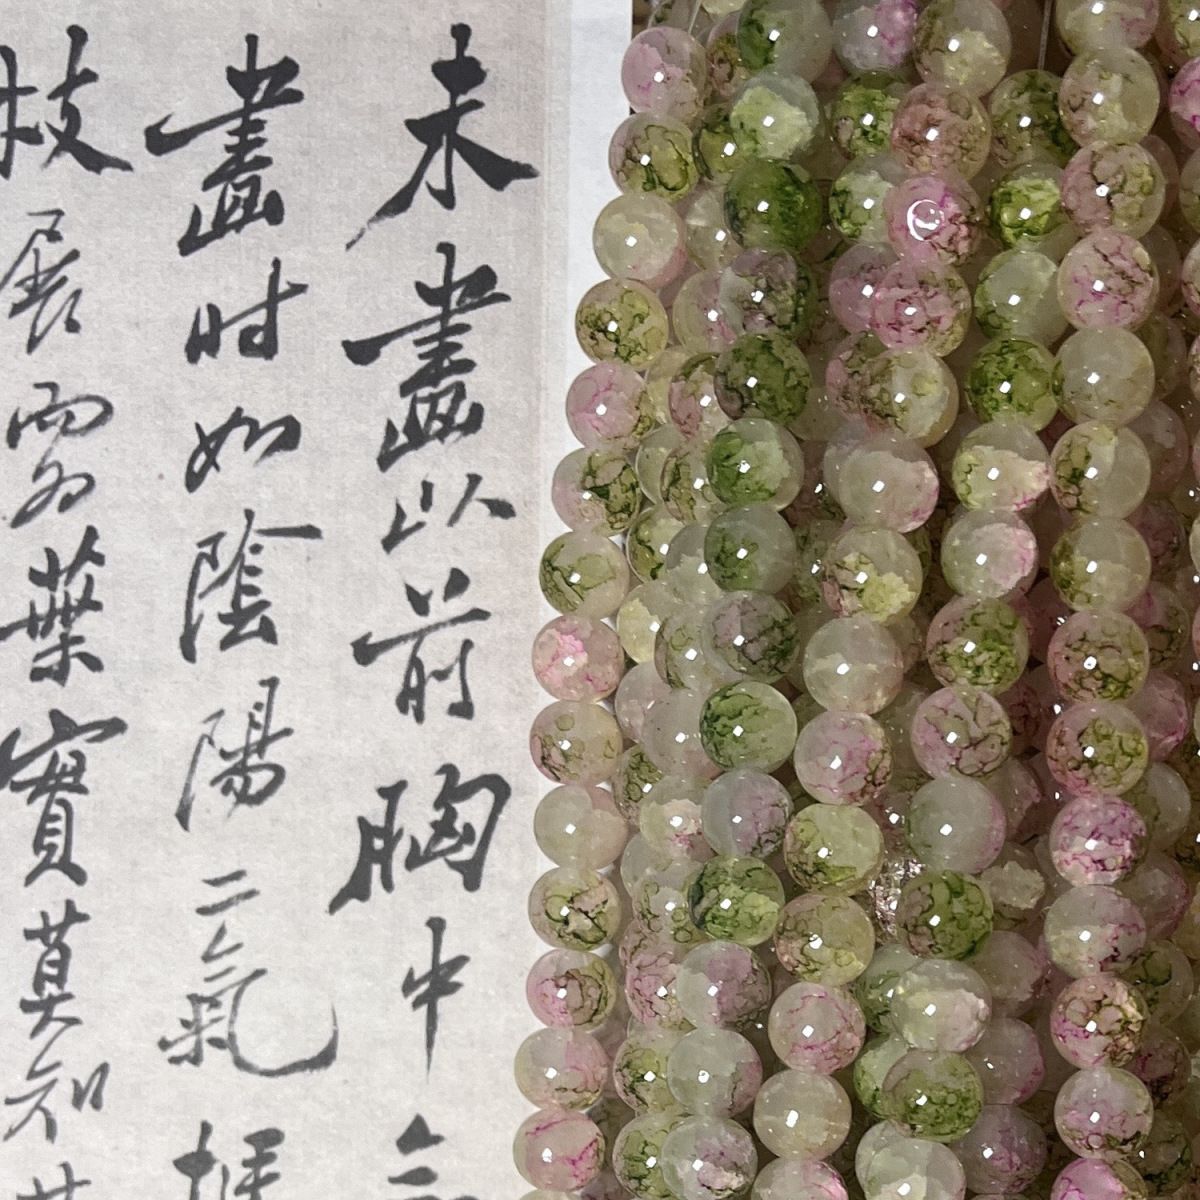 未畫以前胸中
畫时如陰陽二氣
枝展而为葉實莫知